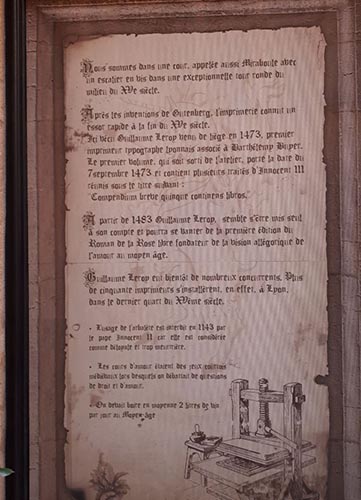 Nous sommes dans une cour, appelée aussi Miraboule avec
un escalier en vis dans une exceptionnelle tour ronde du
milieu du XVe siècle.
Après les inventions de Gutenberg, l'imprimerie connut un
essor rapide à la fin du XVe siècle.
Ici vécit Guillaume Leroy venu de liège en 1473, premier
imprimeur typographe lyonnais associé à Barthélémy Buyer.
Le premier volume, qui soit sorti de l'atelier, porte la date du
7septembre 1473 et contient plusieurs traités d'Innocent III
réunis sous le titre suivant :
"Compendium breve quinque continens libros."
A partir de 1483 Guillaume Leroy, semble s'être mis seul
à son compte et pourra se vanter de la première édition du
Roman de la Rose livre fondateur de la vision allégorique de
l'amour au moyen âge.
Guillaume Leroy eut bientôt de nombreux concurrents. Plus
de cinquante imprimeurs s'installèrent, en effet, à Lyon,
dans le dernier quart du XVème siècle.
• L'usage de l'arbalète est interdit en 1143 par
le pape Innocent II car elle est considérée
comme déloyale et trop meurtrière.
• Les cours d'amour étaient des jeux courtois
médiévaux lors desquels on débattait de questions
de droit et d'amour.
• On devait boire en moyenne 2 litres de vin
par jour au Moyen-âge